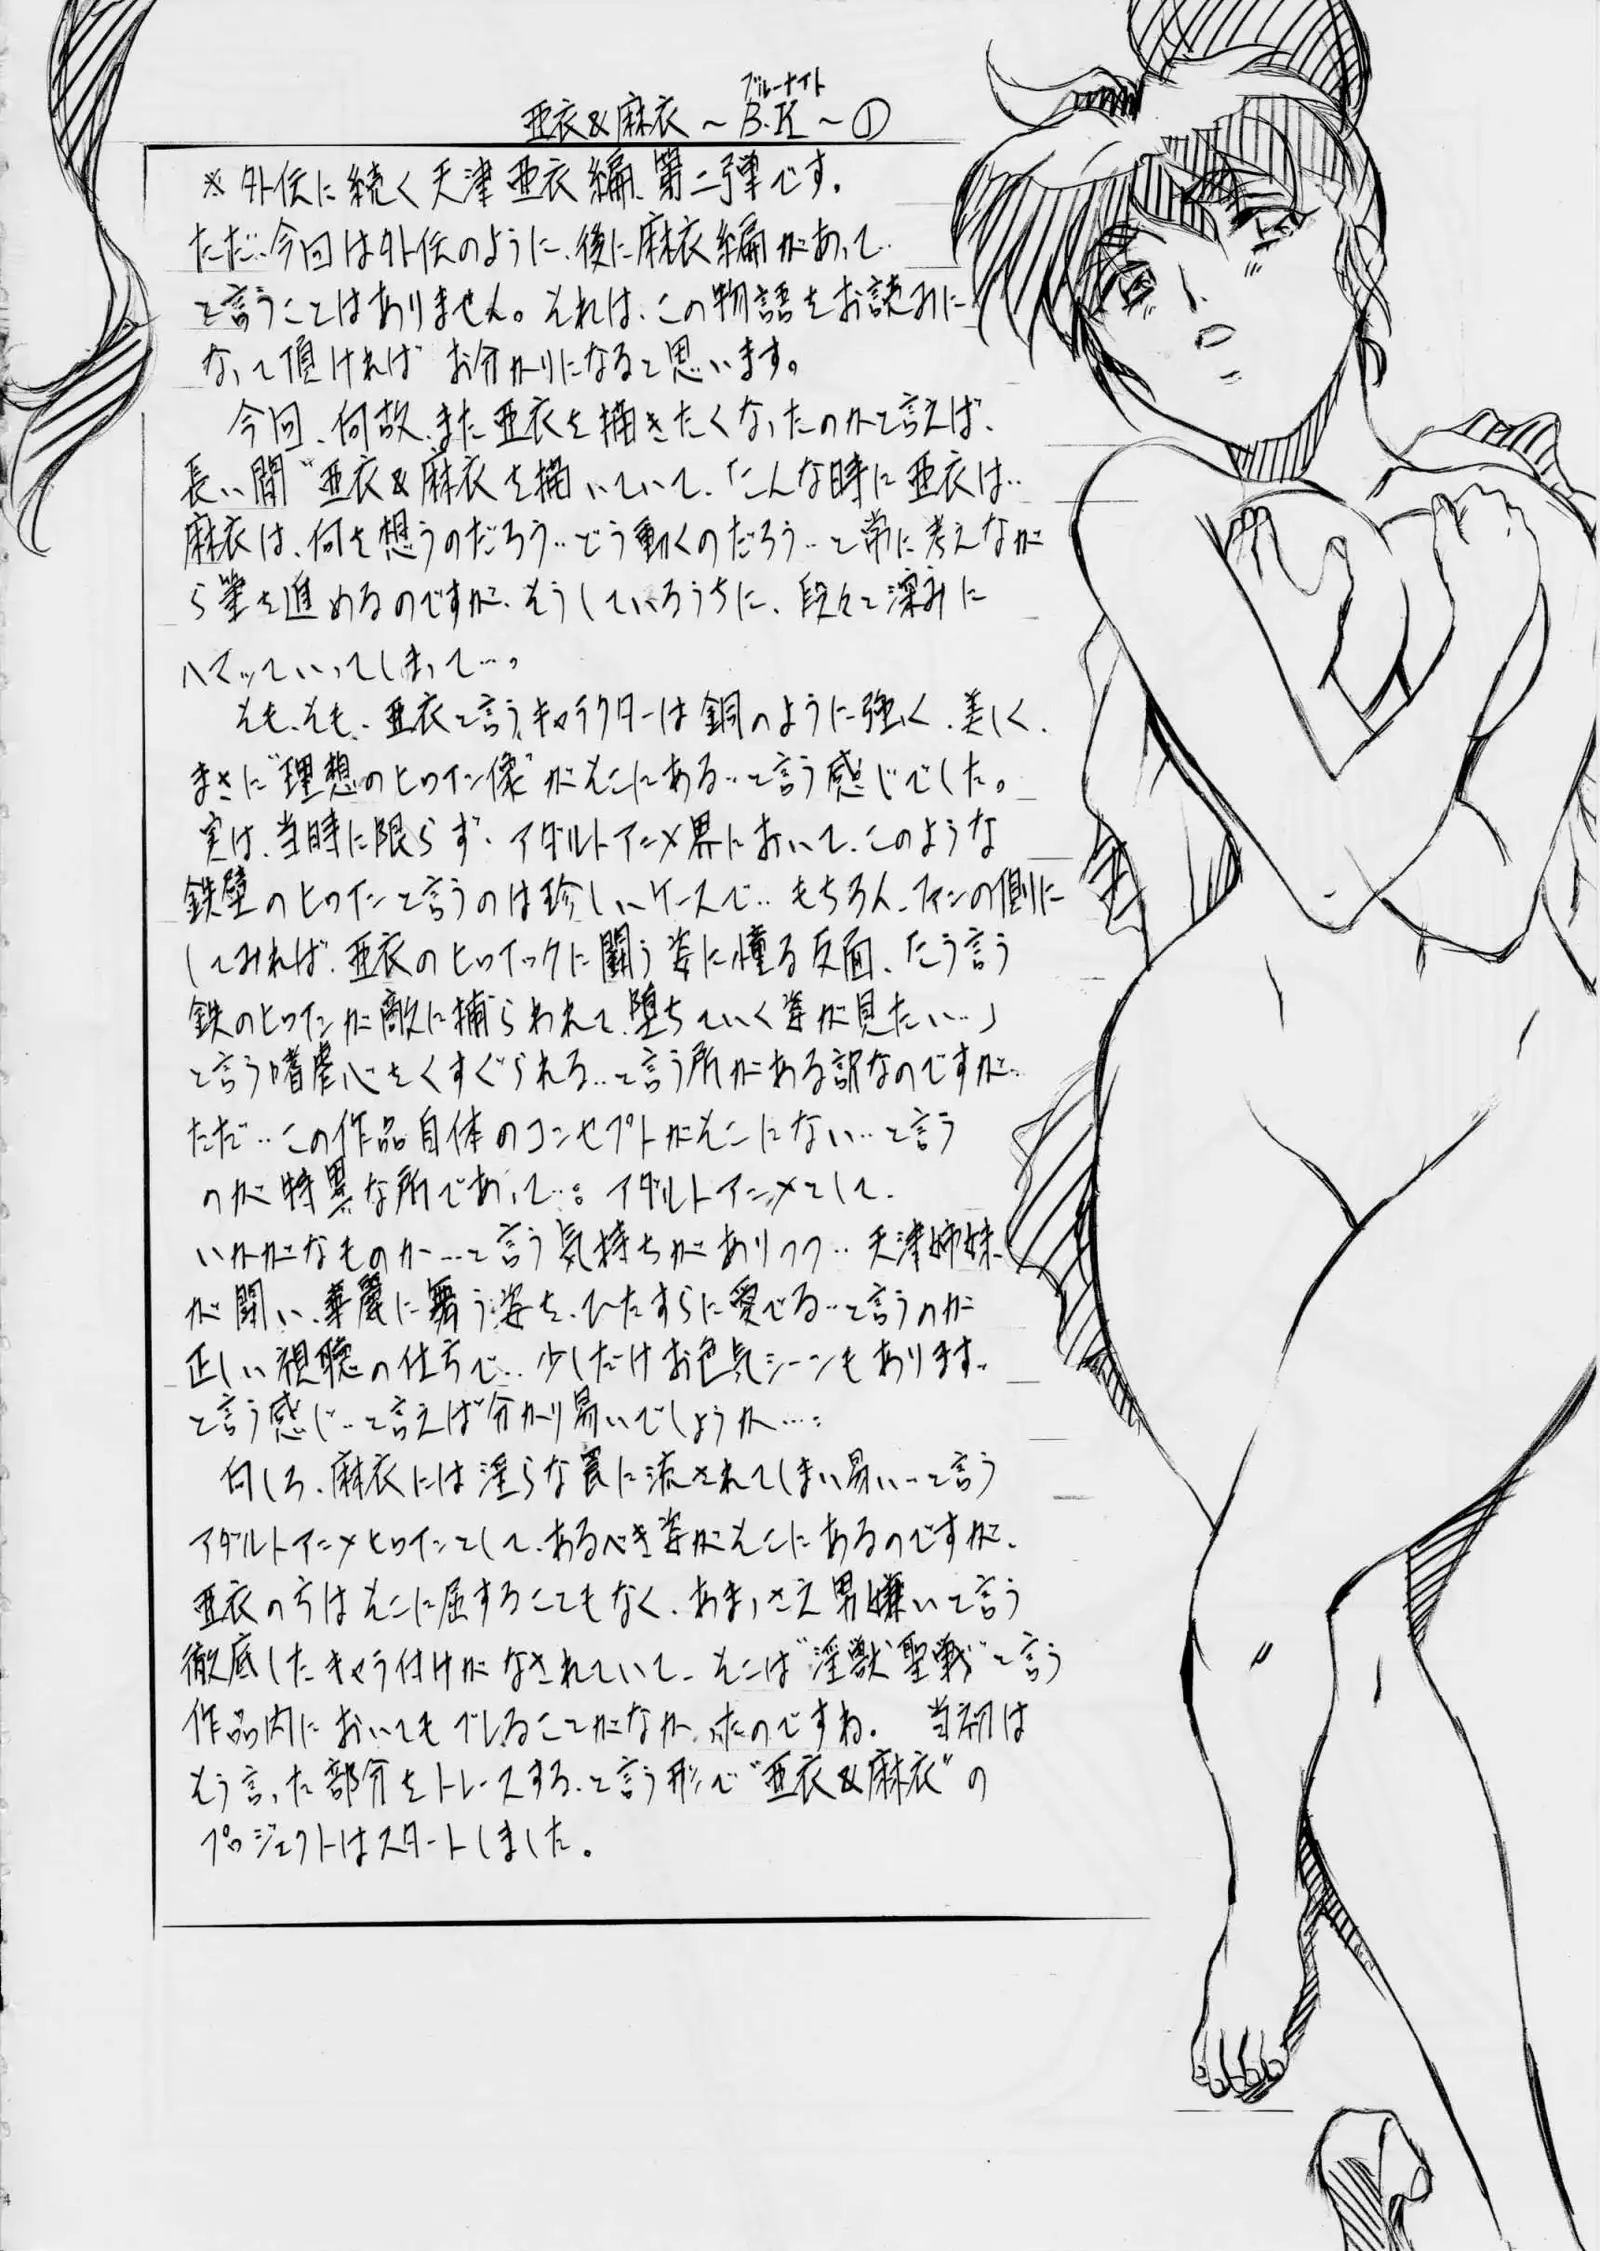 ブルーナイト
亜衣&麻衣～B.K～①
※外伝に続く天津亜衣編、第二弾です。
ただ、今回は外伝のように、後に麻衣編があって‥
と言うことはありません。それは、この物語をお読みに
なって頂ければ お分かりになると思います。
今回、何故、また亜衣を描きたくなったのかと言えば、
長い間“亜衣&麻衣を描いていて、「こんな時に亜衣は‥
麻衣は、何を想うのだろう‥どう動くのだろう‥と常に考えなが
ら筆を進めるのですが、そうしているうちに、段々と深みに
ハマッていってしまって…。
そも、そも、亜衣と言うキャラクターは鋼のように強く、美しく、
まさに“理想のヒロイン像”がそこにある‥と言う感じでした。
実は、当時に限らず、アダルトアニメ界において、このような
鉄壁のヒロインと言うのは珍しいケースで‥もちろん、ファンの側に
してみれば、亜衣のヒロイックに闘う姿に憧る反面、「こう言う
鉄のヒロインが敵に捕らわれて、堕ちていく姿が見たい‥」
と言う嗜虐心をくすぐられる‥と言う所がある訳なのですが、
ただ‥この作品自体のコンセプトがそこにない‥と言う
のが特異な所であって…。アダルトアニメとして、
いかがなものか…と言う気持ちがありつつ‥天津姉妹
が闘い、華麗に舞う姿を、ひたすらに愛でる‥と言うのが
正しい視聴の仕方で‥少しだけお色気シーンもあります。
と言う感じ‥と言えば分かり易いでしょうか…。
何しろ、麻衣には淫らな罠に流されてしまい易い‥と言う
アダルトアニメヒロインとして、あるべき姿がそこにあるのですが、
亜衣の方はそこに屈することもなく、あまっさえ男嫌いと言う
徹底したキャラ付けがなされていて、そこは“淫獣聖戦”と言う
作品内においてもブレることがなかったのですね。 当初は
そう言った部分をトレースする、と言う形で“亜衣&麻衣”の
プロジェクトはスタートしました。